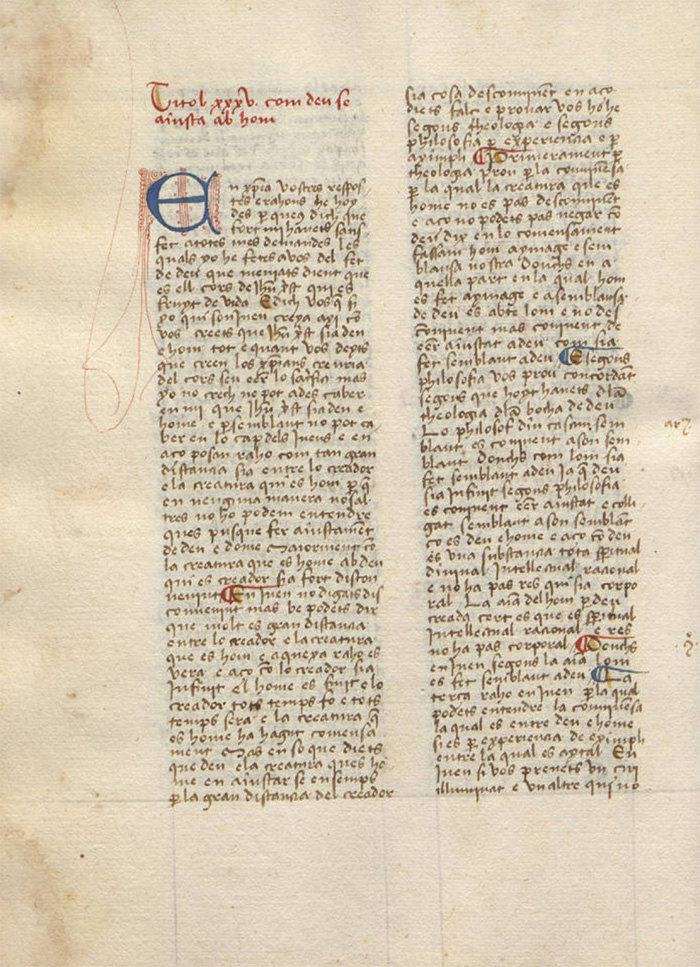 Titol xxxv. com deu se
aiusta ab hom
En xpia vostres respos-
tes e rahons he hoy
des p que us dich que
fort mi havets satis
fet a totes mes demandes les
quals yo he fetes a vos del fet
de deu que meniats dient que
es ell cors de Jhu xst qui es
fruyt de vida E dich vos q si
yo qui son Jueu creya axi co
vos creets que Jhu xst sia deu
e hom tot e quant vos deyts
que creen los xpians creuria
del cors seu esser lo sacrifici mas
yo no crech ne pot ades caber
en mi que Jhu xst sia deu e
home e p semblant no pot ca
ber en lo cap dels Jueus e en
aco posan raho com tan gran
distancia sia entre lo creador
e la creatura qui es hom p q
en neuguna manera nosal
tres no ho podem entendre
ques pusque fer aiustament
de deu e dome Maiorment co
la creatura que es home ab deu
qui es creador sia fort discon
venient En Jueu no digats dis
convenient mas be podets dir
que molt es gran distancia
entre lo creador e la creatura
que es hom e aquexa raho es
vera e aco co lo creador sia
infinit el home es finit e lo
creador tots temps fo e tots
temps sera e la creatura q
es home ha hagut comensa
ment Mas en so que diets
que deu e la creatura ques ho
me en aiustar se ensemps
p la gran distancia del creador
sia cosa desconvinent en aco
diets fals e provar vos he he
segons theologia e segons
philosofia p experiencia e p
aximpli Primerament p
theologia prou p la conexensa
p la qual la creatura que es
home no es pas desconvinent
e aco no podets pas negar co
deu dix en lo comensament
fassam hom a ymage e sem
blansa nostra Donchs en a
quella part en la qual hom
es fet a ymage e a semblansa
de deu es abte lom e no des
convinent mas convinent de
esser aiustat a deu com sia
fet semblant a deu E segons
philosofia vos prou concordant
segons que hoyt havets dla
theologia dla bocha de deu
Lo philosof diu cascun sem
blant es convinent a son sem
blant Donchs com lom sia
fet semblant a deu Ja q deu
sia infinit segons philosofia
es convinent esser aiustat e colli
gat semblant a son semblant
co es deu e home e aco co deu
es una substancia tota spitual
divinal intellectual racional
e no ha pas res qui sia corpo
ral La aia del hom p deu
creada cert es que es spitual
Intellectual racional e res
no ha pas corporal Donchs
en Jueu segons la aia lom
es fet semblant a deu La
terca raho en Jueu p la qual
podets entendre la conexensa
la qual es entre deu e home
si es p experiencia de eximpli
entre la qual es aytal En
Jueu si vos prenets un ciri
illuminat e un altre qui no